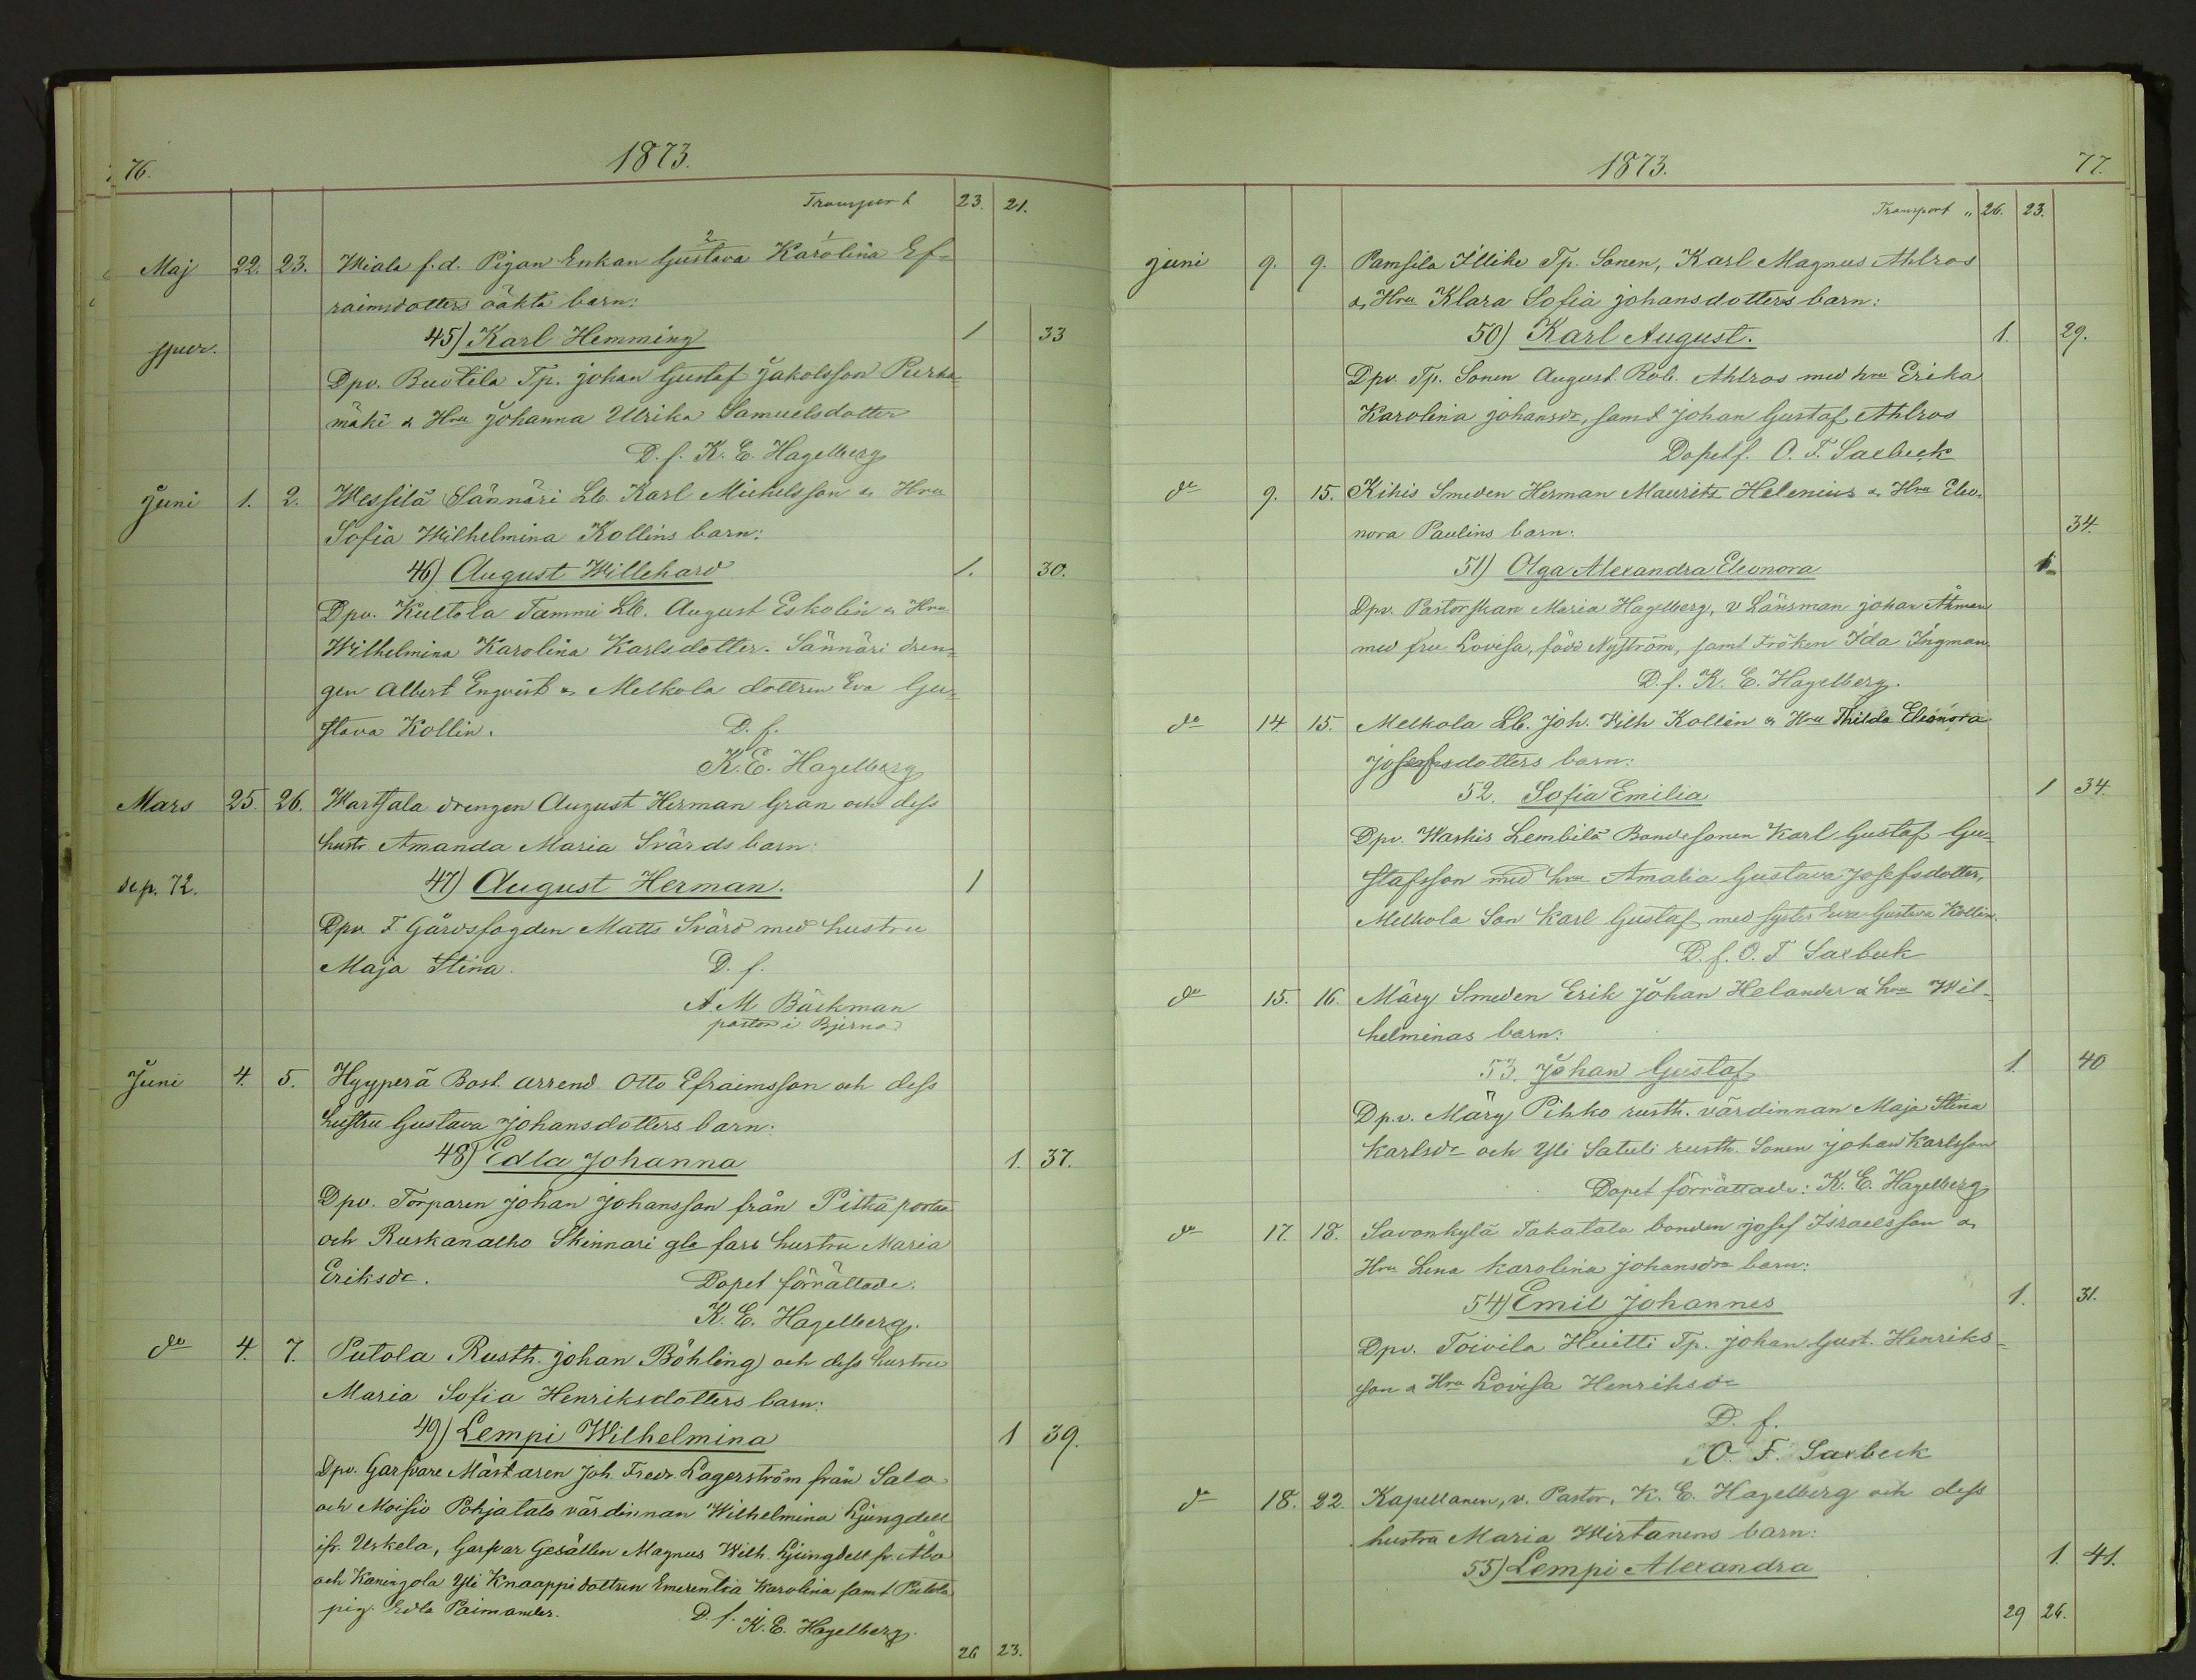 76.
1873.
Transport 23. 21.
Maj 22. 23. Wiala f.d. Pigan Enkan Gustava Karolina Ef-
2 1
raimsdotters oäkta barn:
spur. 45) Karl Hemming 1 33
Dpv. Tp. Johan Gustaf Jakobsson
mäki & Hru Johanna Ulrika Samuelsdotter
D. f. K. E. Hagelberg
Juni 1. 2. Wessilä Sännäri Lb. Karl Michelsson & Hru
Sofia Wilhelmina Kollins barn:
46) August Willehard 1. 30.
Dpv. Kultola Tammi Lb. August Eskolin & Hru
Wilhelmina Karolina Karlsdotter. Sännäri dren-
gen Albert Engvist & Melkola dottren Eva Gu-
stava Kollin. D. f.
K. E. Hagelberg
Mars 25. 26. Wartsala drengen August Herman Gran och dess
hustr. Amanda Maria Svärds barn:
dep. 72. 47) August Herman. 1
Dpv. F. Gårdsfogden Matts Svärd med hustru
Maja Stina. D. f.
A. M Bäckman
pastor i Bjerno
Juni 4. 5. Hyyperä Bost. arrend Otto Efraimsson och dess
hustru Gustava Johansdotters barn:
48) Edla Johanna 1. 37.
Dpv. Torparen Johan Johansson från Pitkäporta
och Ruskanalho Skinnari gla fars hustru Maria
Eriksdr. Dopet förrättade.
K. E. Hagelberg.
do 4. 7. Putola Rusth. Johan Böhling och dess hustru
Maria Sofia Henriksdotters barn:
49) Lempi Wilhelmina 1 39.
Dpv. Garfvare Mästaren Joh. Fredr. Lagerström från Salo
och Moisio Pohjatalo värdinnan Wilhelmina Ljungdell
ifr. Uskela, Garfvar Gesällen Magnus Wilh. Ljungdell fr. Åbo
och Kaningola Yli Knaappi dottren Emerentia Karolina samt Putola
pig. Edla Paimander. D. f. K. E. Hagelberg.
26 23.
1873.
77.
Transport " 26. 23.
juni 9. 9. Pamsila Illike Tp. Sonen, Karl Magnus Ahlros
& Hru Klara Sofia Johansdotters barn:
50) Karl August. 1. 29.
Dpv. Tp. Sonen August Rob. Ahlros med hru Erika
Karolina Johansdr, samt Johan Gustaf Ahlros
Dopetf. O. F. Saxbeck
do 9. 15. Kihis Smeden Herman Mauritz Helenius & Hru Eleo-
nora Paulins barn: 34.
51) Olga Alexandra Eleonora 1
Dpv. Pastorskan Maria Hagelberg, v Länsman Johan Åhman
med fru Lovisa, född Nyström, samt Fröken Ida Ingman
D. f. K. E. Hagelberg.
do 14. 15. Melkola Lb. Joh. Wilh Kollin & Hru Thilda Eleonora
Josefsdotters barn:
52. Sofia Emilia 1 34.
Dpv. Waskis Lembilä Bondesonen Karl Gustaf Gu-
stafsson med hru Amalia Gustava Josefsdotter,
Melkola Son Karl Gustaf med syster Eva Gustava Kollin.
D. f. O. F Saxbeck
do 15. 16. Märy Smeden Erik Johan Helander & hru Wil-
helminas barn:
53. Johan Gustaf 1. 40
Dp.v. Märy Pihko rusth. värdinnan Maja Stina
Karlsdr och Yli Satuli rusth. Sonen Johan Karlsson
Dopet förrättade: K. E. Hagelberg
do 17. 18. Savonkylä Takatalo bonden Josef Israelsson &
Hru Lena Karolina Johansdrs barn:
54) Emil Johannes 1. 31.
Dpv. Toivila Huitti Tp. Johan Gust. Henriks-
son & Hru Lovisa Henriksdr
D. f.
O. F. Saxbeck
do 18. 22 Kapellanen, v. Pastor, K. E. Hagelberg och dess
hustru Maria Wirtanens barn:
55) Lempi Alexandra 1. 41.
29 26.